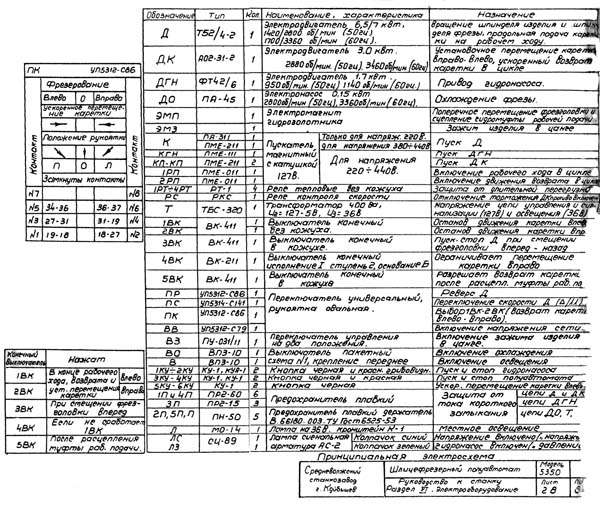 Обозначение Тип Кол. Наименование, характеристика Назначение
Д Т52/4-2 1 Электродвигатель 6,5/7 квт. 1420/2800 об/мин (50гц) Вращение шпинделя изделия и
деля фрезы, продольная подача
на рабочем ходу.
ДК АО2-31-2 1 Электродвигатель 3.0 квт. Установочное перемещение
2880 об/мин. (50гц), 3460 об/мин (60гц) вправо-влево, ускоренный возврат
каретки в цикле
ДГН ФТ42/6 1 Электродвигатель 1.7 квт. Привод гидронасоса.
950 об/мин. (50гц) 1140 об/мин (60гц)
ДО ПА-45 1 Электронасос 0.15 квт Охлаждение фрезы.
2800 об/мин (50гц), 3360 об/мин (60гц).
ЭМП 1 Электромагнит Поперечное перемещение фрезголовки и
гидрозолотника сцепление гидромуфты рабочей
ЭМЗ 1 Зажим изделия в цанге
К ПА-311 1 Пускатель магнитный с катушкой 127в. Только для напряж. 220в. Пуск Д
ПМЕ-211 1 для напряжения 380÷440в.
КГН ПМЕ-111 1 Для напряжения 220÷440в. Пуск ДГН
КЛ-КП ПМЕ-211 2 Пуск ДК
1РП ПМЕ-011 1 Включение рабочего хода в цикле
2РП ПМЕ-011 1 Включение движения возврата в
1РТ÷4РТ РТ-1 4 Реле тепловые без кожуха Защита от длительной
РС РКС 1 Реле контроля скорости Отключение торможения Д
Т ТБС-320 1 Трансформатор 400 ва. Напряжение цепи управления и
U2=127-5В, U3=36В (127в) и освещения (36В)
1ВК ВК-411 1 Выключатель конечный Останов движения каретки
2ВК 1 без кожуха. Останов движения каретки
3ВК ВК-411 1 Выключатель конечный Пуск-стоп Д при смещении
в кожухе. фрезголовки вперед-назад
4ВК ВК-211 1 Выключатель конечный Ограничивает перемещение
исполнение I ступень 2, основание Б каретки вправо
5ВК ВК-411 1 Выключатель конечный Разрешает возврат каретки
в кожухе после расцепл. муфты раб.
ПР УП5312-С86 1 Переключатель универсальный, Реверс Д
ПС УП5314-С141 1 рукоятка овальная. Переключение скорости Д
ПК УП5312-С86 1 Выбор 1ВК-2ВК (возврат
влево-вправо).
ВВ УП5312-С79 1 Включение напряжения сети.
ВЗ ПУ-031/11 1 Переключатель управления Включение зажима изделия
на два положения. в цанге.
ВО ВПЗ-10 1 Выключатель пакетный Включение охлаждения
В ВПЗ-10 1 схема N1, крепление переднее Включение освещения
1КУ-2КУ КУ-1, 1 Кнопка черная и красн. Пуск и стоп гидронасоса
3КУ-4КУ КУ-1, 1 Кнопка черная и красная Пуск и стоп полуавтомата
5КУ-6КУ КУ-1 2 Кнопка черная Ускор. перемещение каретки
1П и 4П ПР2-60 6 Предохранитель плавкий Защита от цепи Д и ДК
3П ПР2-15 3 тока короткого цепи ДГН
2П, 5П, П ПН-50 5 Предохранитель плавкий держатель замыкания цепи ДО, Т,
Л МО-14 1 Лампа на 36в. кронштейн К-1 Местное освещение
ЛС СЦ-89 1 Лампа сигнальная Колпачок синий Напряжение включено
ЛЗ 1 арматура АС-2 Колпачок зеленый Гидронасос включен
ПК УП5312-С86
Фрезерование
Влево 0 Вправо
Ускоренное перемещение каретки
Положение рукоятки
Л 0 П
Контакт Замкнуты контакты Контакт
N7 N8
N5 34-36 36-37 N6
N3 27-31 31-19 N4
N1 19-18 18-27 N2
Конечный выключатель Нажат
1ВК В конце рабочего хода, возврата и уст. перемещения каретки влево
2ВК вправо
3ВК При смещении фрезголовки вперед
4ВК Если не сработает 1ВК
5ВК После расцепления
муфты раб. подачи.
Принципиальная электросхема
Средневолжский станкозавод г. Куйбышев
Шлицефрезерный полуавтомат Модель 5350
Руководство к станку Лист
Раздел VI. Электрооборудование 28